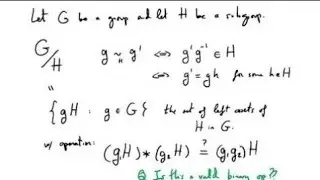 Let G be a group and let H be a subgroup.
G/H g ~_H g' <=> g'g⁻¹ ∈ H
<=> g' = gh for some h∈H
"
{gH : g ∈ G} the set of left cosets of H in G.
w/ operation: (g₁H) * (g₂H) ?= (g₁g₂)H
Q Is this a valid binary op??